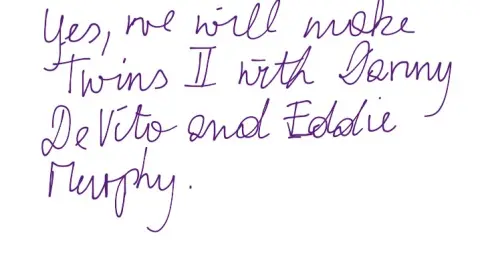 Yes, we will make
Twins II with Danny
DeVito and Eddie
Murphy.